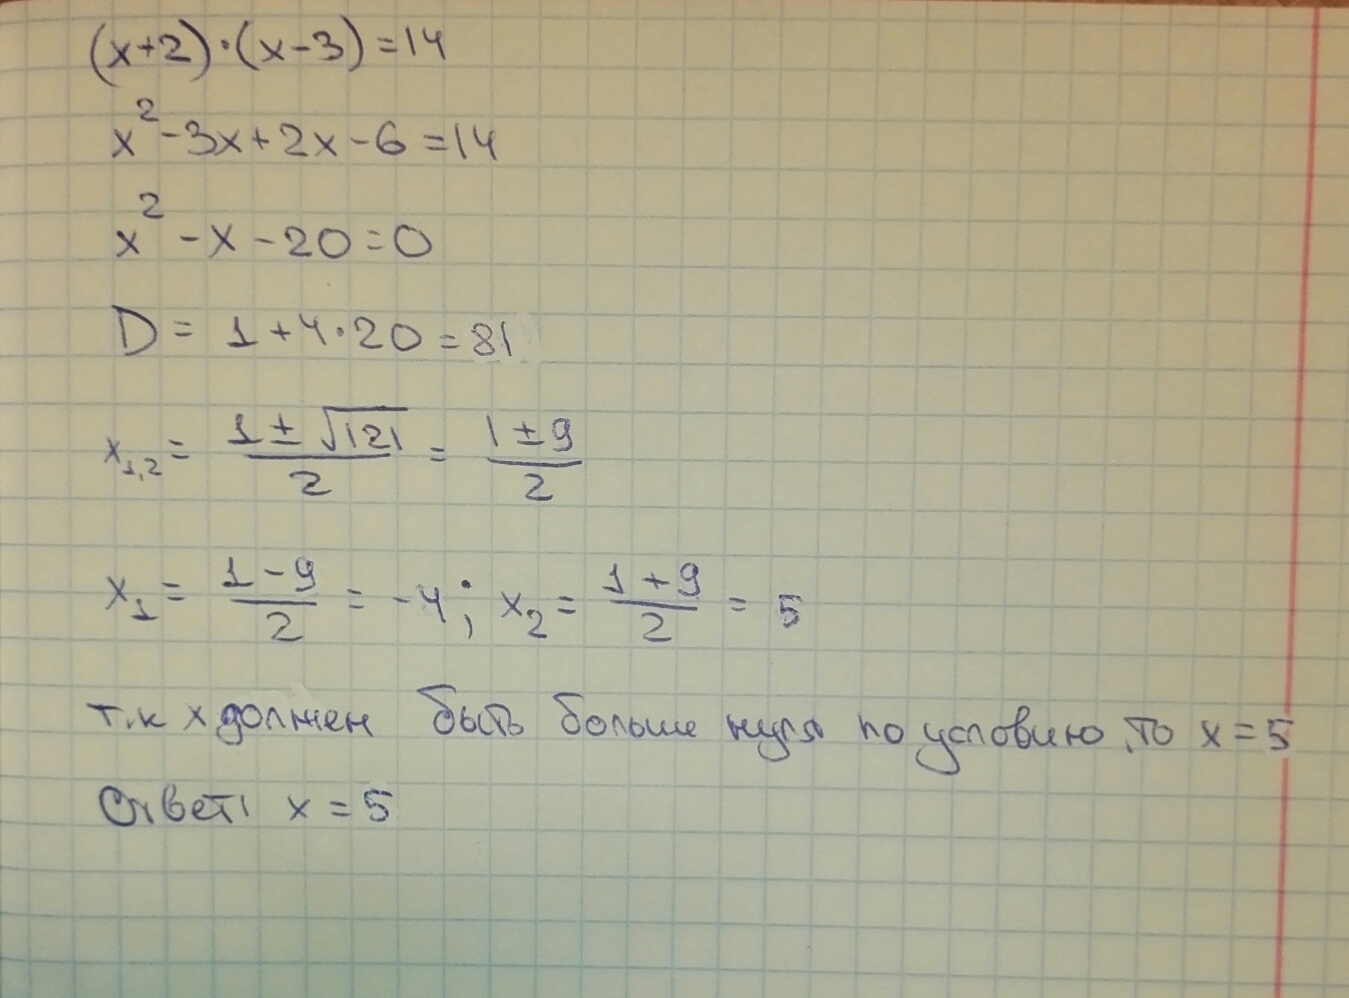 (x+2)·(x-3)=14
x²-3x+2x-6=14
x²-x-20=0
D= 1+4·20=81
x₁,₂= (1±√121)/2 = (1±9)/2
x₁= (1-9)/2 = -4; x₂= (1+9)/2 = 5
т.к x должен быть больше нуля по условию, то x=5
Ответ: x=5